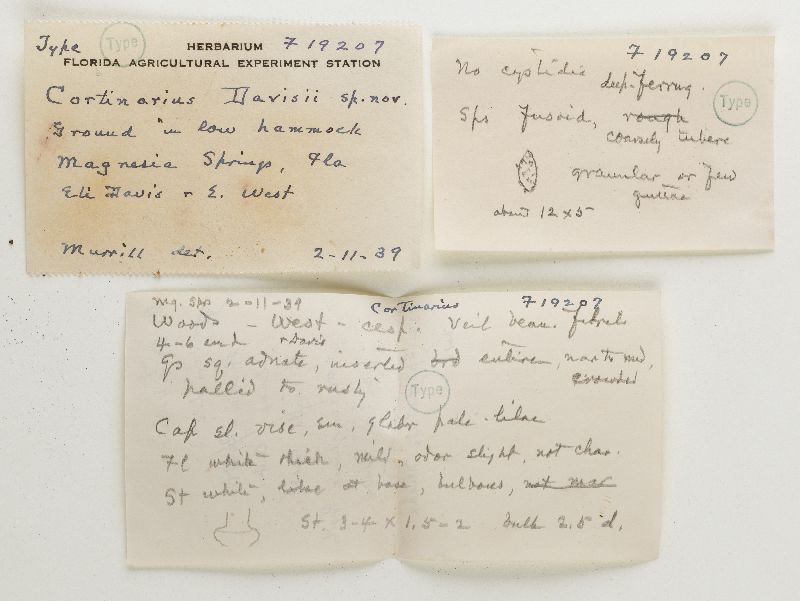 Type Type HERBARIUM F 19207
FLORIDA AGRICULTURAL EXPERIMENT STATION
Cortinarius Davisii sp. nov.
Ground in low hammock
Magnesia Springs, Fla
Eli Davis & E. West
Murrill det. 2-11-39
F 19207
No cystidia deep-ferrug.
Type
Sps fusoid, rough
coarsely tuberc
granular or few
guttae
about 12 x 5
Mg. Sps 2-11-39 Cortinarius F 19207
Woods - West - cesp. Veil beau. fibrils
4-6 cm d & Davis
Gp sq. adnate, inserted brd entire, nar to med,
crowded
pallid to rusty
Type
Cap sl. visc, sm, glabr pale-lilac
Fl white thick, mild, odor slight, not char.
St white, lilac at base, bulbous, not mar
St. 3-4 x 1.5-2 bulb 2.5 d.